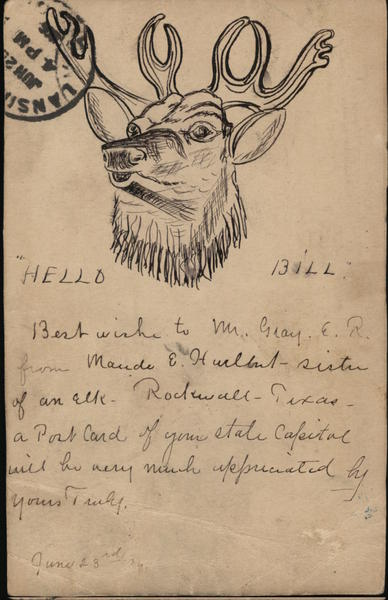 LANSI
JUN 25
4 PM
"HELLO BILL"
Best wishe to Mr. Gray. E. R.
from Maude E. Hurlbut - sister
of an elk - Rockwall - Texas -
a Post Card of your state Capitol
will be very much appreciated by
yours Truly.
June 23rd